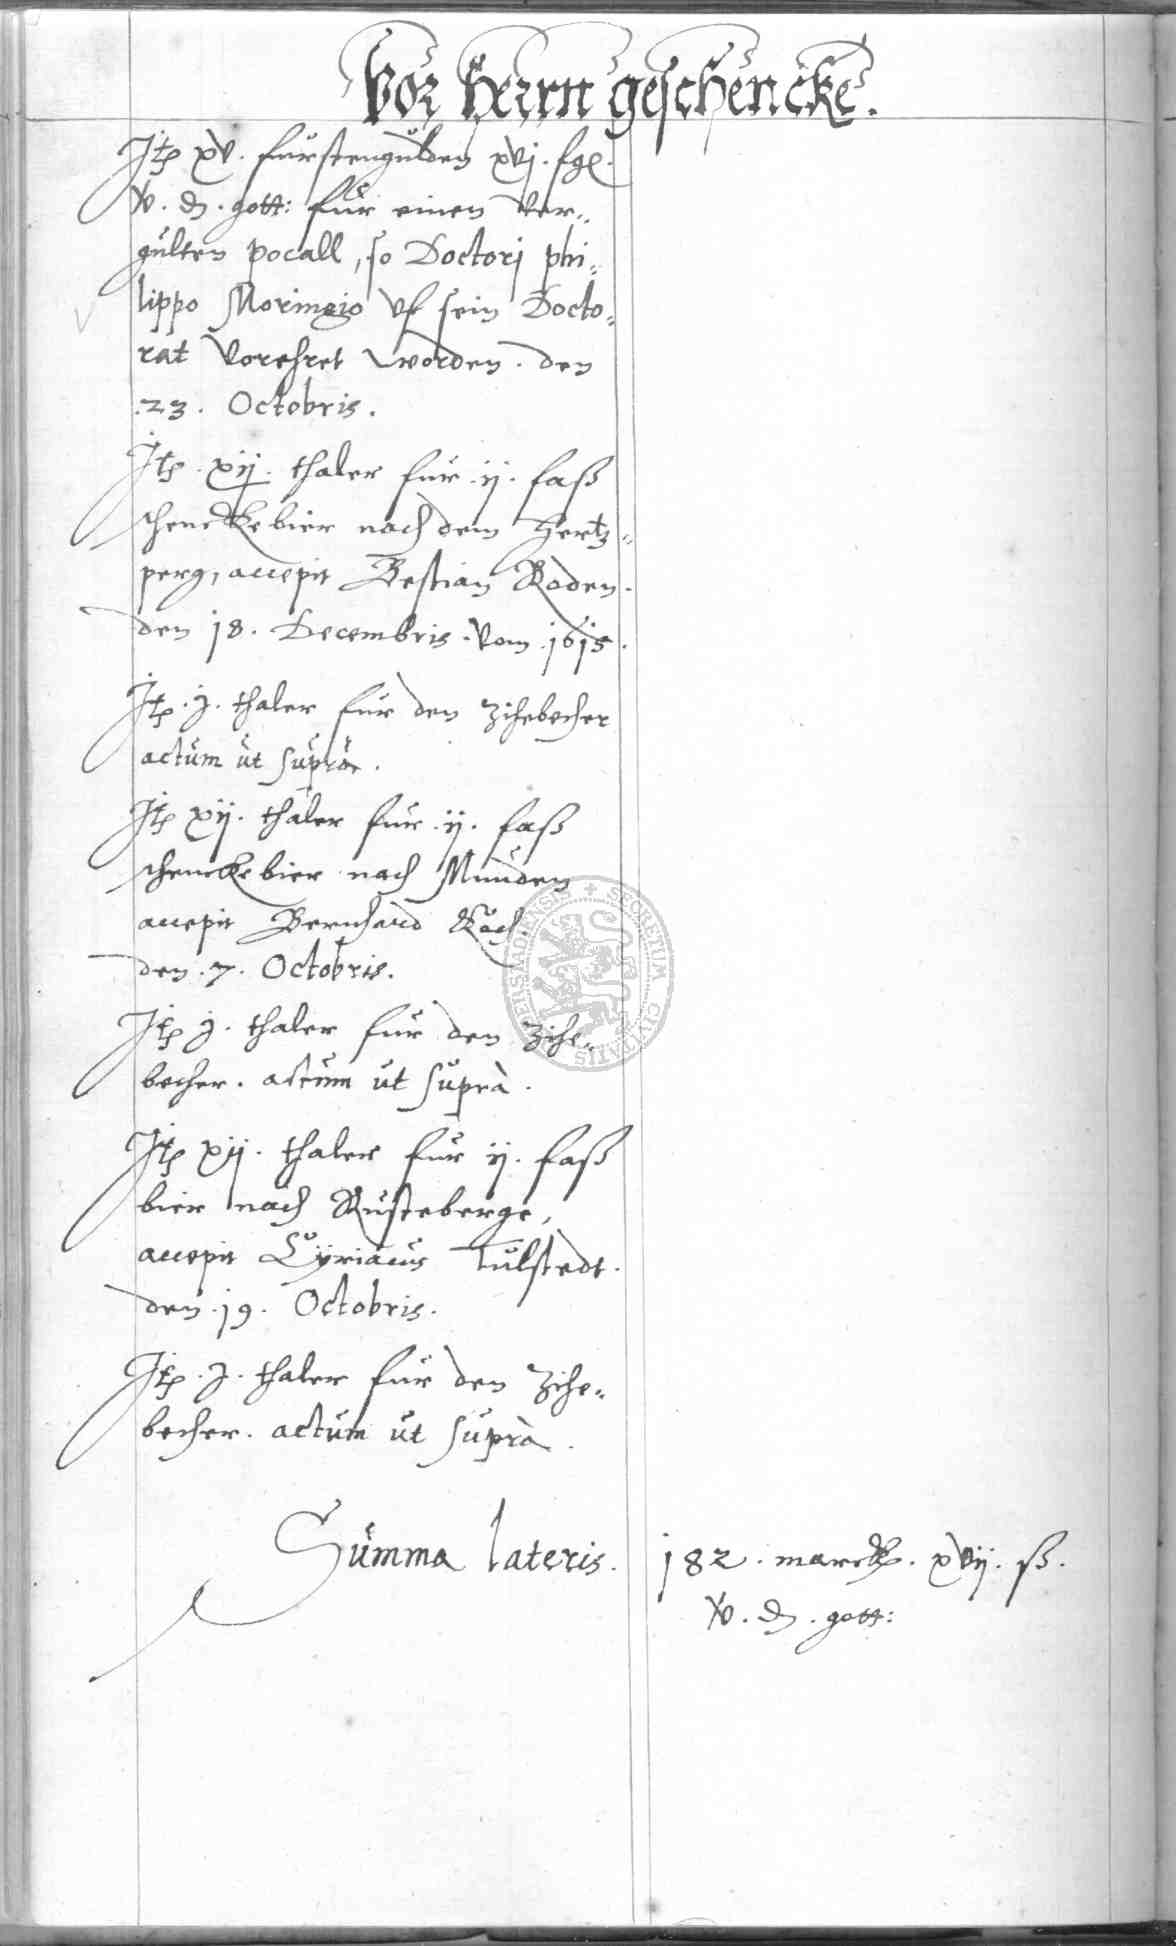 Vor Herrn geschencke.
Itē xv. fürstengülden xvj. fgl.
v. d. gott: für einen ver=
gülten pocall, so Doctorj phi=
lippo Moringio vf sein Docto=
rat vorehret worden. den
.23. Octobris.
Itē. xij. thaler für .ij. faß
schenckebier nach dem Hertz=
perg, accepit Bestian Roden.
den 18. Decembris. vom .1615.
Itē. j. thaler für den ziehebecher
actum ut suprà.
Itē xij. thaler für .ij. faß
schenckebier nach Munden
accepit Bernhard Koch.
den .7. Octobris.
Itē j. thaler für den zihe=
becher. actum ut suprà.
Itē xij. thaler für ij. faß
bier nach Rusteberge,
accepit Cyriacus Tulstedt.
den .19. Octobris.
Itē. j. thaler für den zihe=
becher. actum ut suprà.
Summa lateris. 182. marck. xvij. ß.
v. d. gott:
SECRETUM CIVITATIS